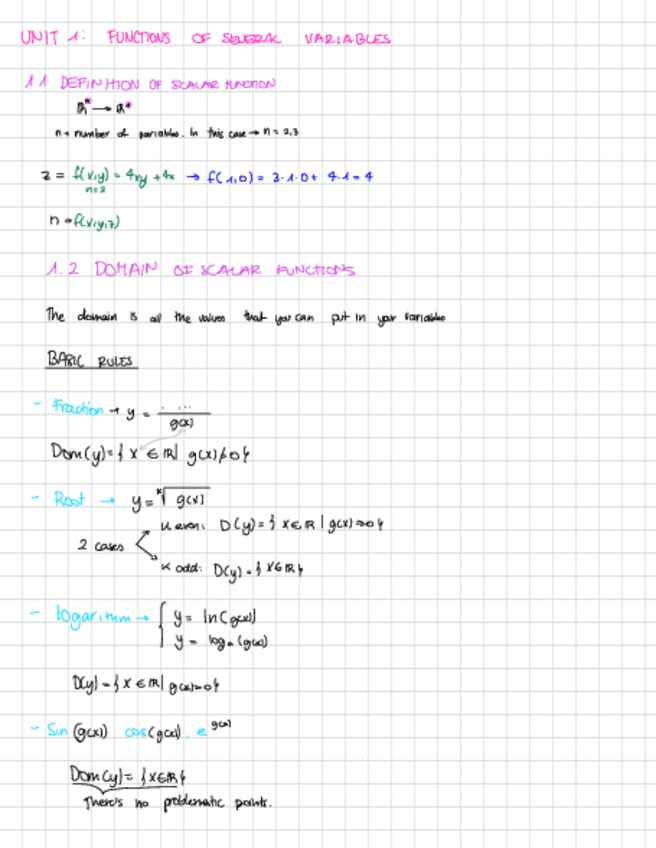 UNIT 1: FUNCTIONS OF SEVERAL VARIABLES
1.1 DEFINITION OF SCALAR FUNCTION
ℝⁿ → ℝ
n → number of variables. In this case → n = 2,3
z = f(x,y) = 4xy + 4x → f(1,0) = 3·1·0 + 4·1 = 4
n=2
n = f(x,y,z)
1.2 DOMAIN OF SCALAR FUNCTIONS
The domain is all the values that you can put in your variables
BASIC RULES
- Fraction → y = .../g(x)
Dom(y) = { x ∈ ℝ | g(x) ≠ 0 }
- Root → y = ᴷ√g(x)
K even: D(y) = { x ∈ ℝ | g(x) ≥ 0 }
2 cases
K odd: D(y) = { x ∈ ℝ }
- logarithm → { y = ln(g(x))
y = logₐ(g(x))
D(y) = { x ∈ ℝ | g(x) > 0 }
- Sin(g(x)) cos(g(x)). e^g(x)
Dom(y) = { x ∈ ℝ }
There's no problematic points.